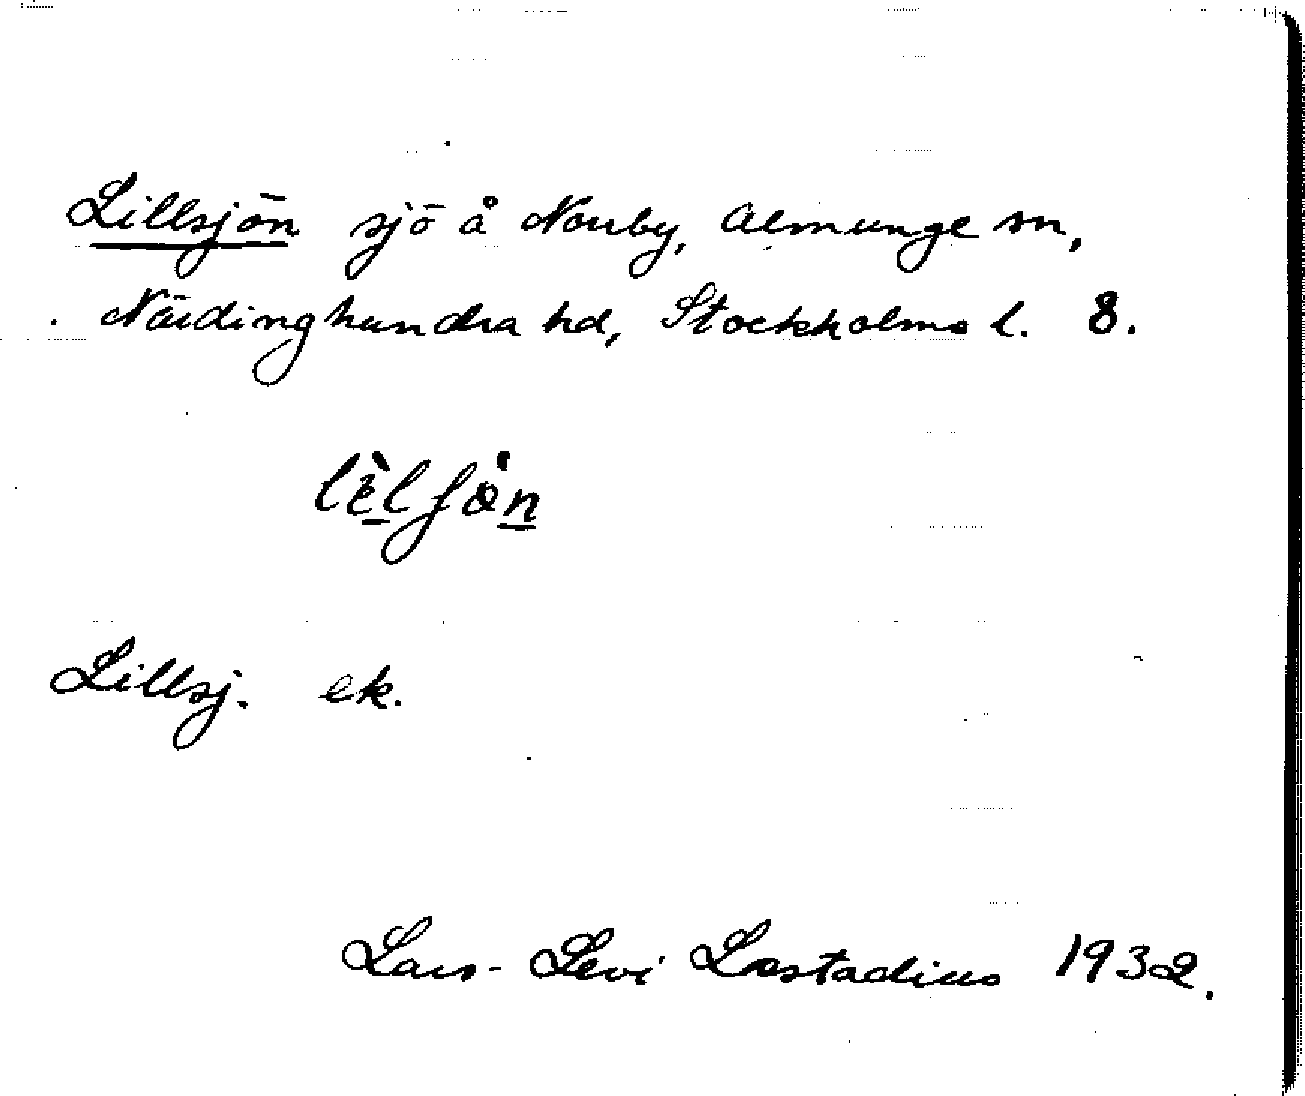 Lillsjön sjö å Norrby, Almunge sn,
Närdinghundra hd, Stockholms l. 8.
lèlʃön
Lillsj. ek.
Lars-Levi Læstadius 1932.